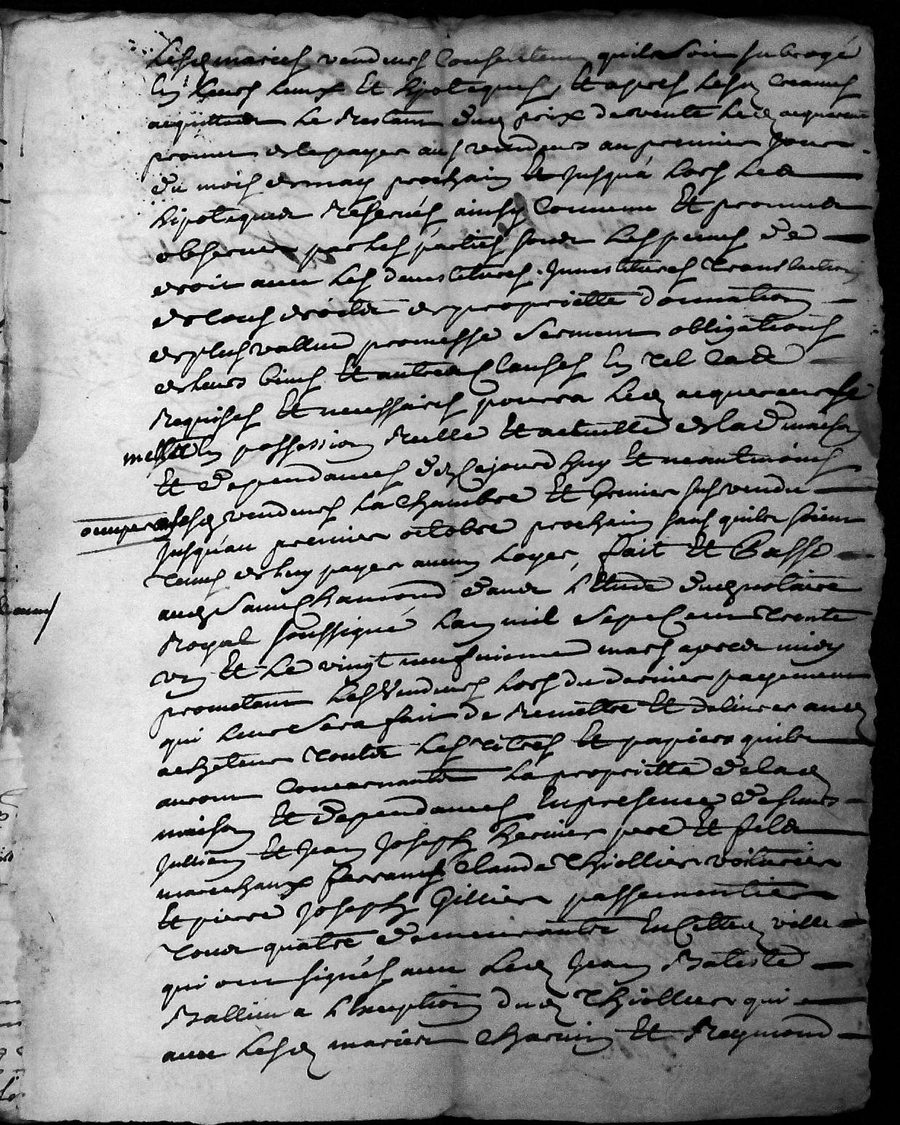 Lesd mariés vendeurs Consentent quil soit subrogé
En Leurs Lieux Et hipoteques, Et apres Lesd Creances
acquittées Le Restant dud prix de vente Led acquereur
promet de le payer aux vendeurs au premier Jour
du mois de may prochain Et Jusqu'a Lors Les
hipoteques Reservés ainsy Convenu Et promis
observer par les parties sous Les peines de
droit avec Les demistitures Investitures translation
de tous droits de propriette donnation
de plus vallue promesse Serment obligations
de leurs biens Et autres Clauses En tel Cas
Requises Et necessaires pourra Led acquereur se
mettre En possession Reelle Et actuelle de lad maison
Et dependances des ajourdhuy Et neantmoins
occuperont Lesd vendeurs La Chambre Et Grenier sus vendu
Jusquau premier octobre prochain sans quils soient
tenus de luy payer aucun Loyer, fait Et Passé
aud Saint Chamond dans L'Etude dud notaire
Royal soussigné Lan mil Sept Cent trente
un Et Le vingt neufvieme mars apres midy
promettant Les Vendeurs Lors du dernier payement
qui Leur Sera fait de Remettre Et delivrer aud
achepteur touts Les titres Et papiers quils
auront Concernants La propriette de lad
maison Et dependances En presence de sieurs
Jullien Et Jean Joseph pere Et fils
marechaux ferrants Claude Thiollier voiturier
Et pierre Joseph Gillier passementier
tous quatre demeurants En Cette d ville
qui ont signés avec Led Jean Batiste
a L'exception dud Thiollier qui
avec Lesd mariés Charvin Et Reymond